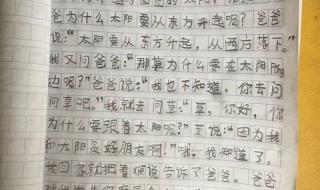 爸为什么太阳要从东方升起呢？爸爸
说：“太阳要从东方升起，从西方落下。”
我又问爸爸：“那草为什么要在太阳的
边呢？”爸爸说：“我也不知道，你去问
问草吧。”我就去问草：“草，你好，你
为什么要跟着太阳呢？”草说：“因为我
和太阳是好朋友啊！”哦，我知道了。
我回家就把草说告诉了爸爸，爸爸